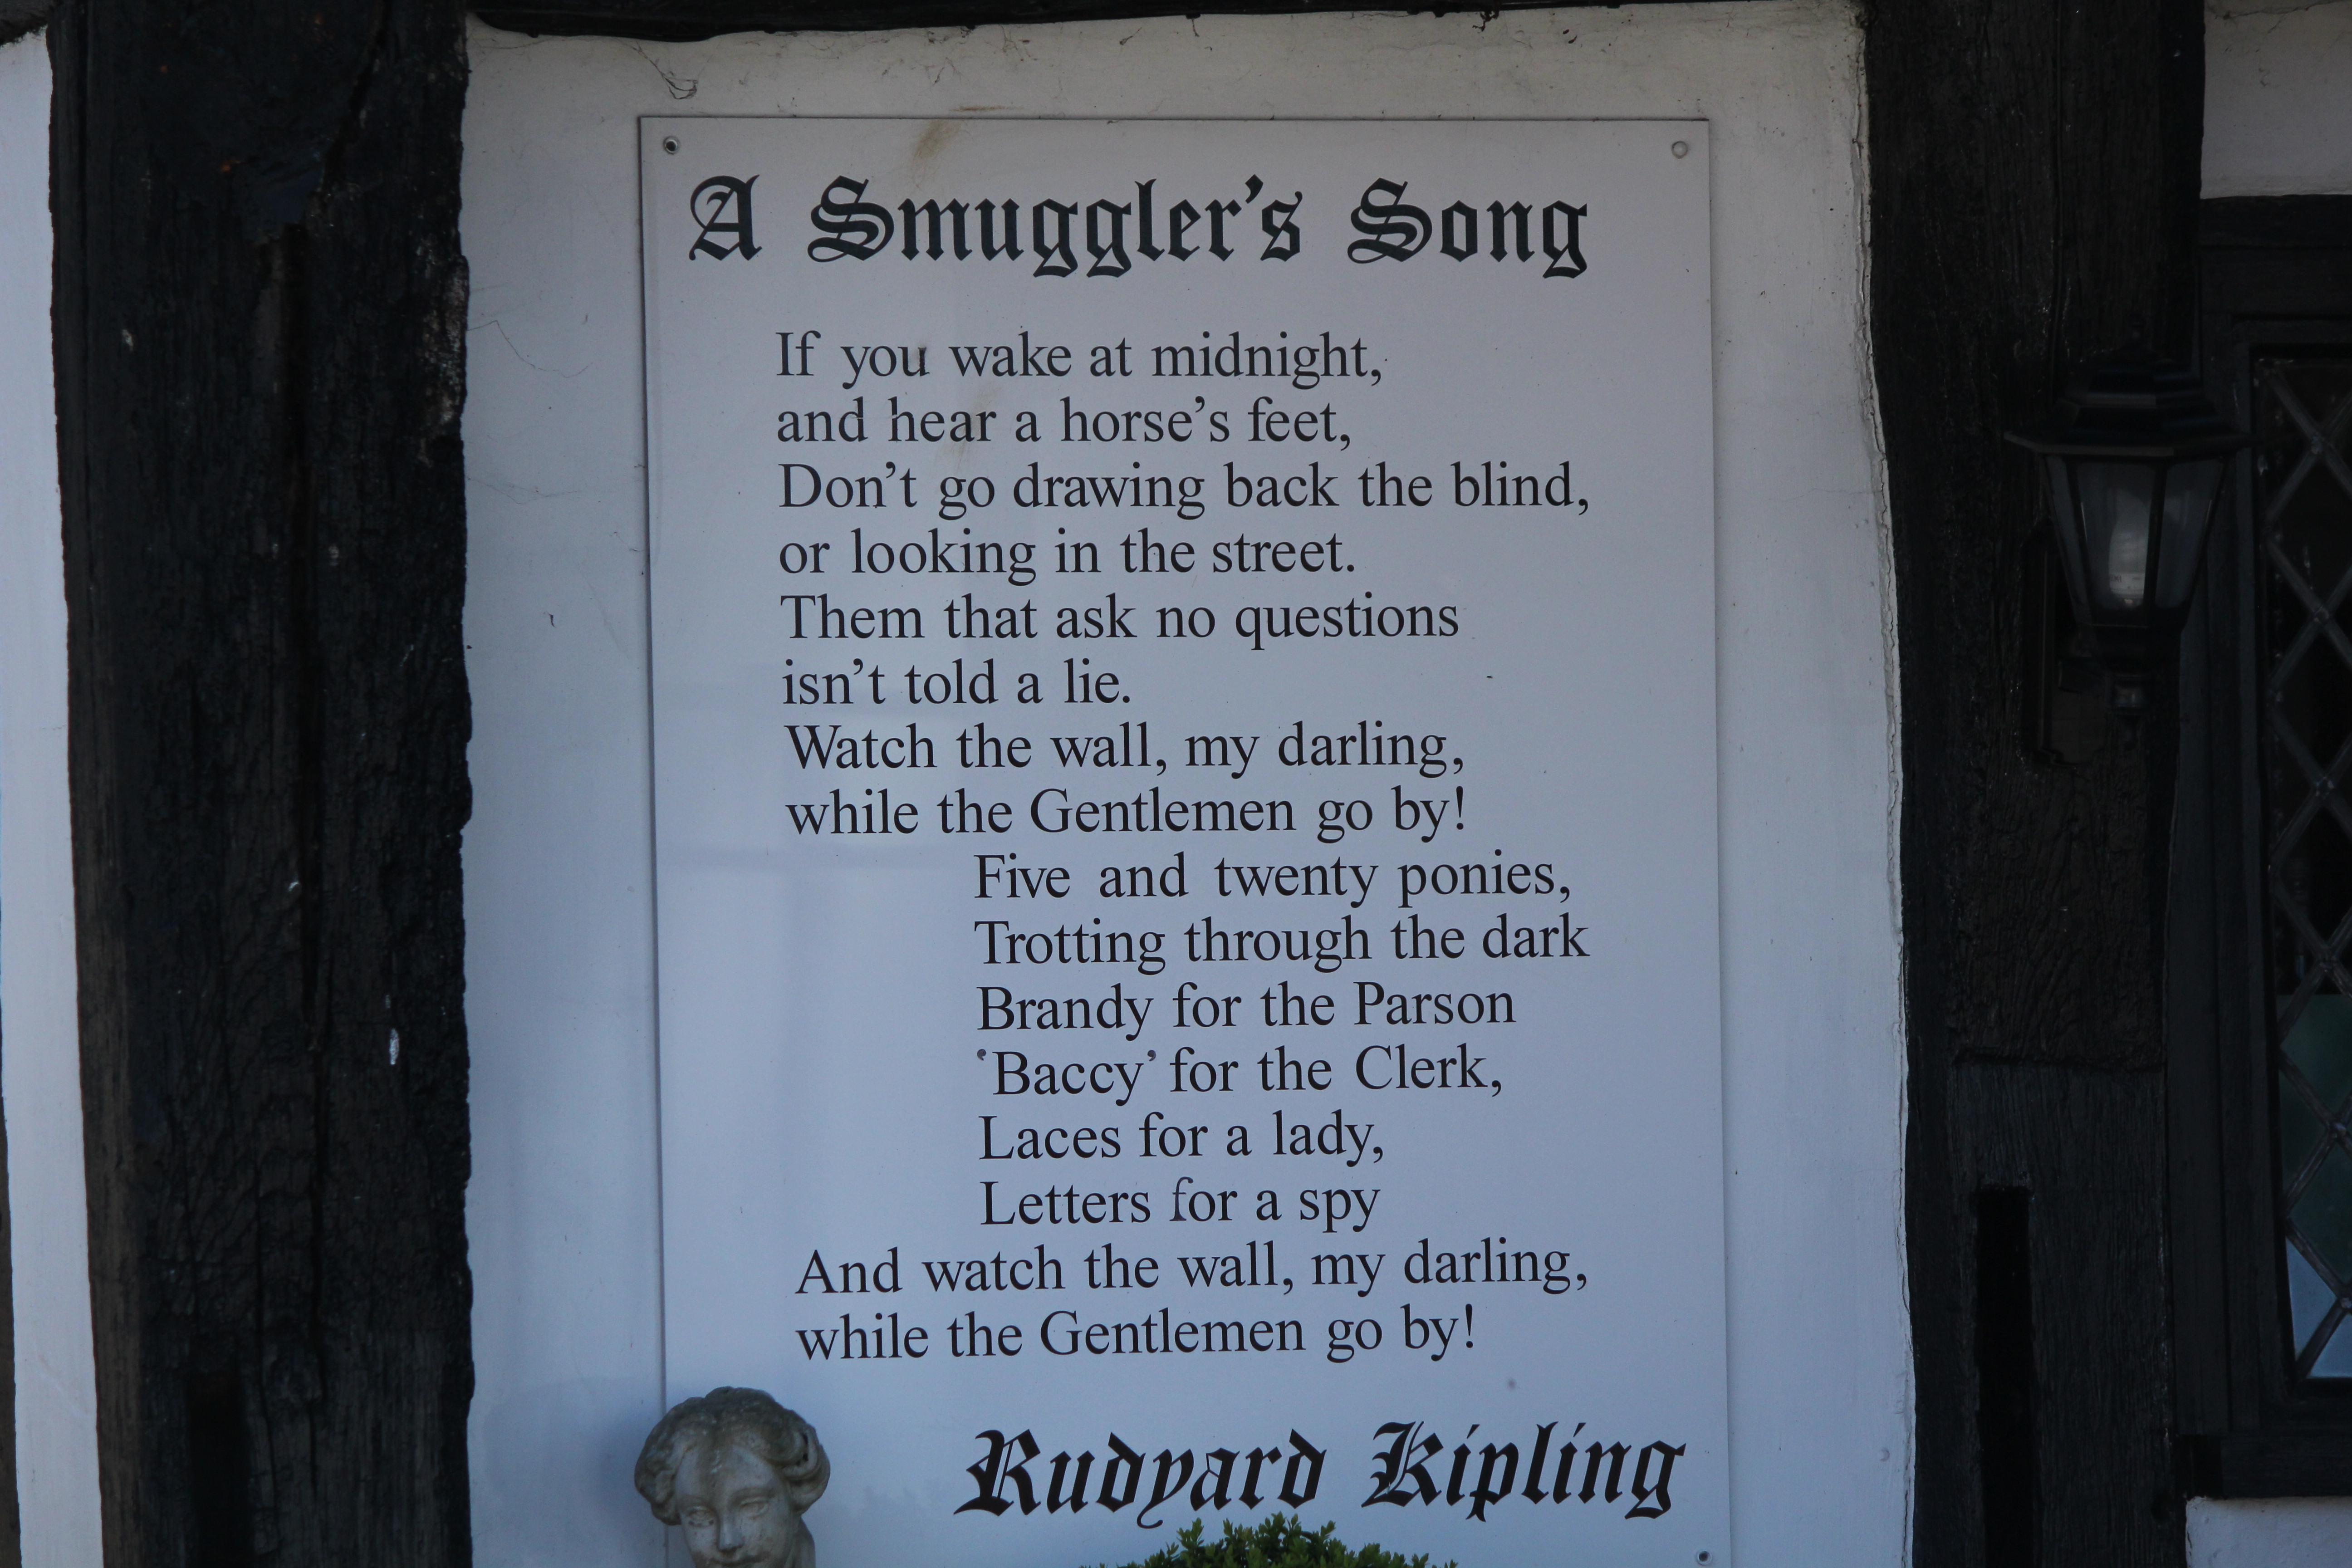 A Smuggler's Song
If you wake at midnight,
and hear a horse's feet,
Don't go drawing back the blind,
or looking in the street.
Them that ask no questions
isn't told a lie.
Watch the wall, my darling,
while the Gentlemen go by!
Five and twenty ponies,
Trotting through the dark
Brandy for the Parson
'Baccy' for the Clerk,
Laces for a lady,
Letters for a spy
And watch the wall, my darling,
while the Gentlemen go by!
Rudyard Kipling